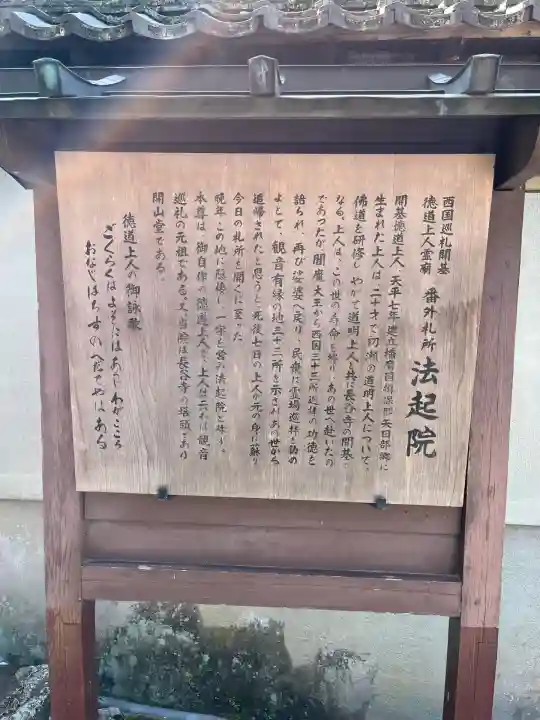 西国巡礼開基
徳道上人霊廟
番外札所
法起院
開基徳道上人、天平七年建立播磨国揖保郡矢田部郷に
生まれた上人は二十才で初瀬の道明上人について、
佛道を研修しやがて道明上人と共に長谷寺の開基と
なる。上人は、この世の寿命を終り、あの世へ赴いたの
であったが閻魔大王から西国三十三所巡拝の功徳を
語られ、再び娑婆へ戻り、民衆に霊場巡拝を勧め
よとして、観音有縁の地三十三所を示されあの世から
追帰されたと思うと、死後七日の上人が元の身に蘇り
今日の札所を開くに至った
晩年、この地に隠棲し、一宇を営み法起院と称す。
本尊は、御自作の徳道上人で、上人は云わば観音
巡礼の元祖である。又、当院は長谷寺の塔頭であり
開山堂である。
徳道上人の御詠歌
ごくらくはよそにはあらじわがこころ
おなじはちすのへだてやはある